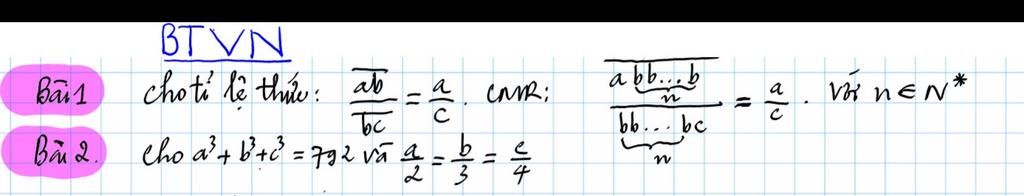 BTVN
Bài 1 cho tỉ lệ thức: \frac{\overline{ab}}{\overline{bc}} = \frac{a}{c}. CMR: \frac{\overline{a\underbrace{bb...b}_{n}}}{\overline{\underbrace{bb...b}_{n}c}} = \frac{a}{c}. Với n ∈ N*
Bài 2. Cho a³ + b³ + c³ = 792 và \frac{a}{2} = \frac{b}{3} = \frac{c}{4}